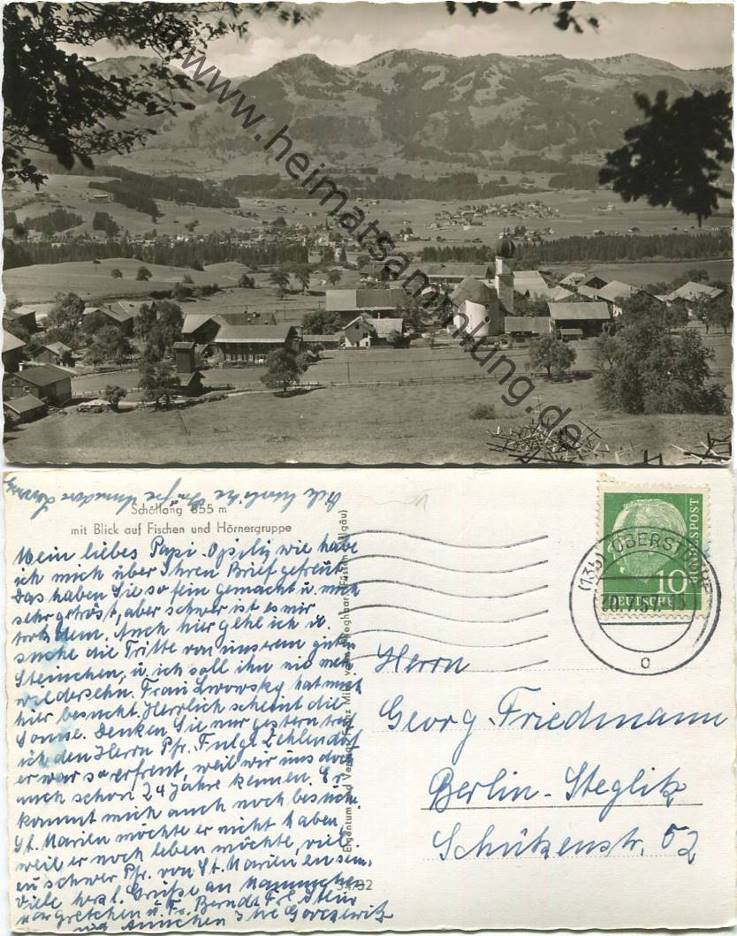 www.heimatsammlung.de
Schöllang 855 m
mit Blick auf Fischen und Hörnergruppe
Mein liebes Papi-Opili, wie habe
ich mich über Ihren Brief gefreut.
Das haben Sie so fein gemacht u. mich
sehr getröst, aber schwer ist es mir
trotzdem. Auch hier gehe ich u.
suche die Tritte von unserem guten
Steinchen, u. ich soll ihn nie mehr
wiedersehn. Frau Lwowsky hat mich
hier besucht. Herrlich scheint die
Sonne. Denken Sie nur gestern traf
ich den Herrn Pfr. Fulge Zehlendorf
er war so erfreut, weil wir uns doch
auch schon 24 Jahre kennen. Er
kommt mich auch noch besuchen
St. Marien möchte er nicht haben
weil er noch leben möchte, viel
zu schwer Pfr. von St. Marien zu sein.
Viele herzl. Grüße an
von Gretchen u. Fr. Berndt Frl. Stein
Ännchen
Eigentum und Verlag: Franz Milz, Füssen (Allgäu)
34732
(13b) OBERSTDORF
o
10
DEUTSCHE
BUNDESPOST
Herrn
Georg Friedmann
Berlin-Steglitz
Schützenstr. 52